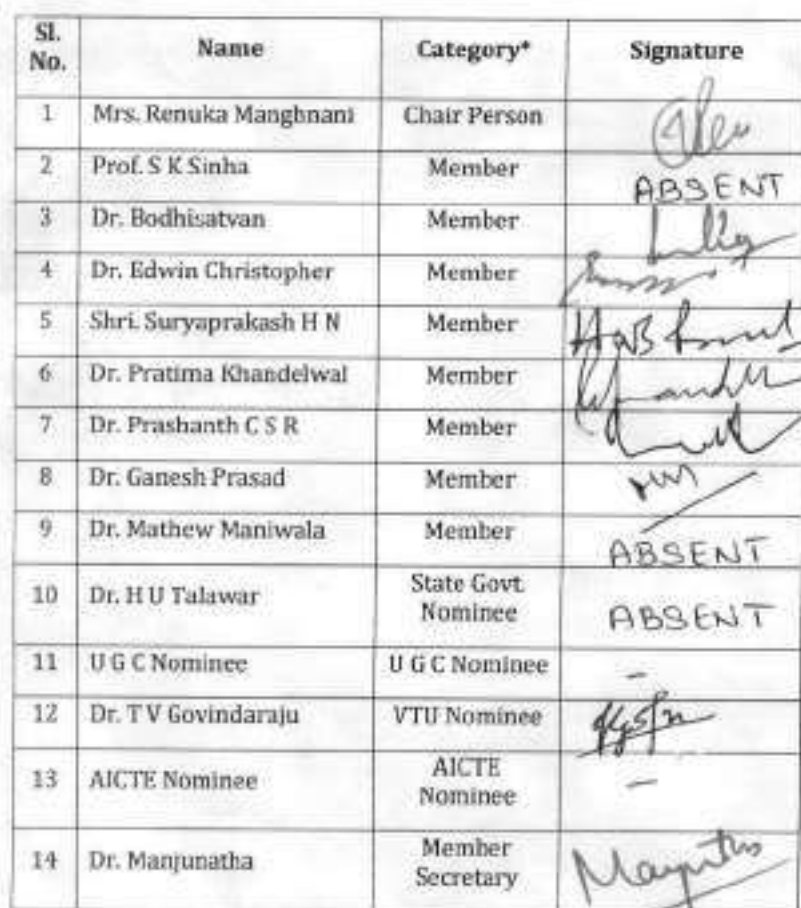 Sl. No. Name Category* Signature
1 Mrs. Renuka Manghnani Chair Person
2 Prof. S K Sinha Member ABSENT
3 Dr. Bodhisatvan Member
4 Dr. Edwin Christopher Member
5 Shri. Suryaprakash H N Member
6 Dr. Pratima Khandelwal Member
7 Dr. Prashanth C S R Member
8 Dr. Ganesh Prasad Member
9 Dr. Mathew Maniwala Member ABSENT
10 Dr. H U Talawar State Govt. Nominee ABSENT
11 U G C Nominee U G C Nominee -
12 Dr. T V Govindaraju VTU Nominee
13 AICTE Nominee AICTE Nominee -
14 Dr. Manjunatha Member Secretary